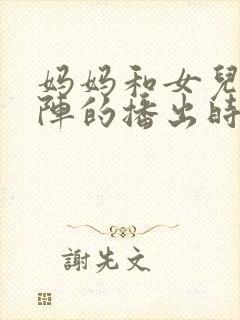 妈妈和女兒
陣的播出時
謝先文